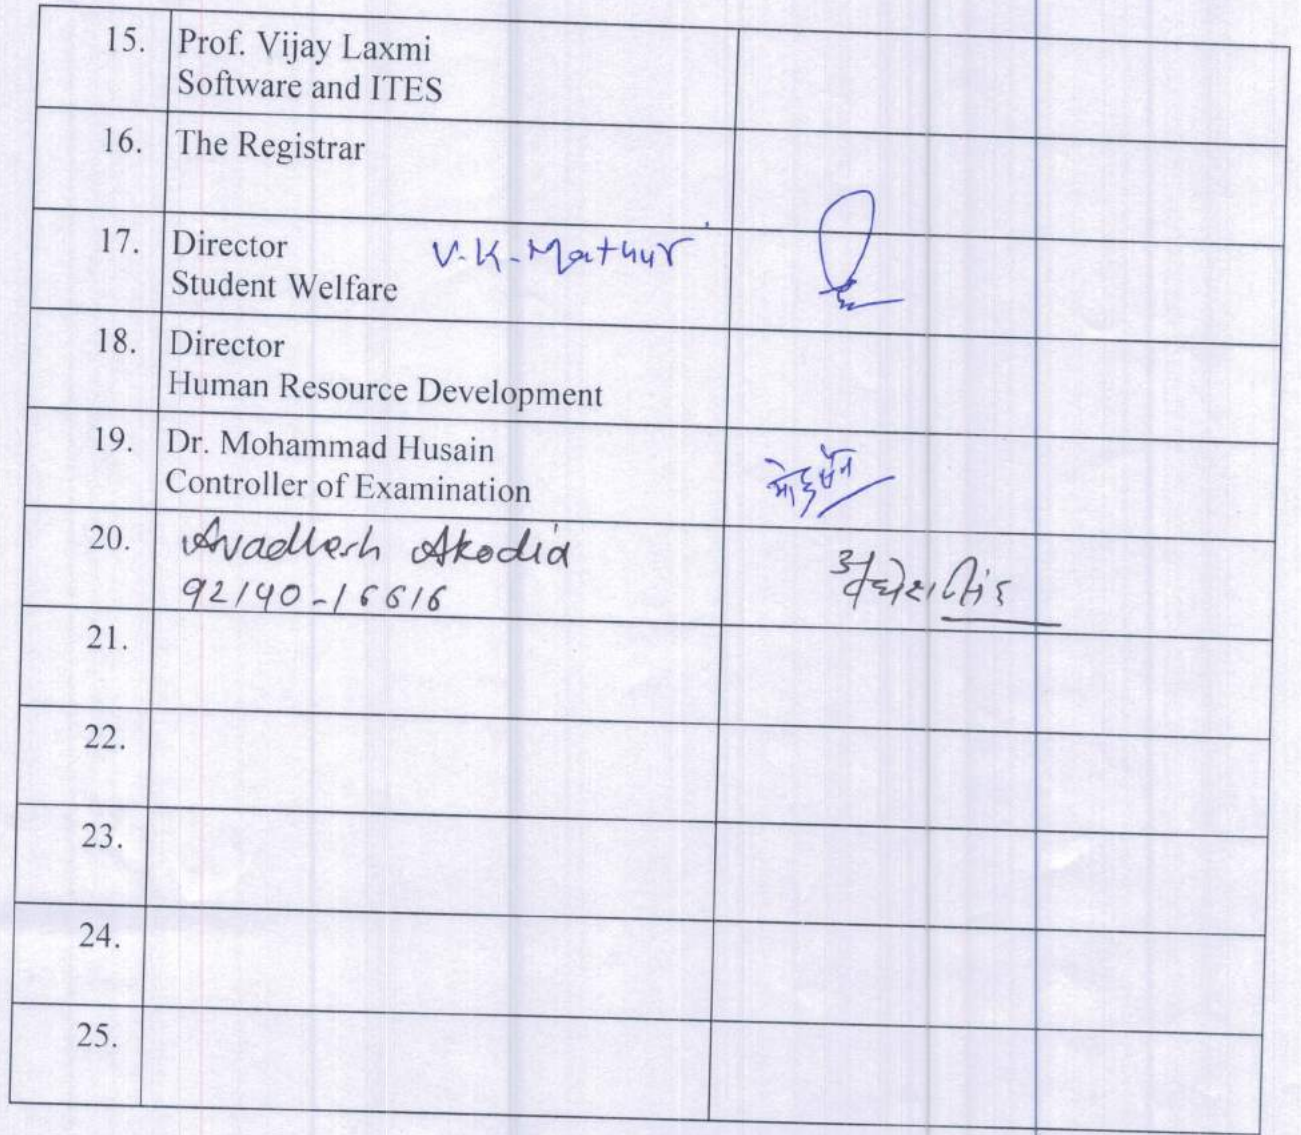 15. Prof. Vijay Laxmi
Software and ITES
16. The Registrar
17. Director V.K. Mathur
Student Welfare
18. Director
Human Resource Development
19. Dr. Mohammad Husain
Controller of Examination
मो हुसैन
20. Avadhesh Akodia
92140-16616
21.
22.
23.
24.
25.